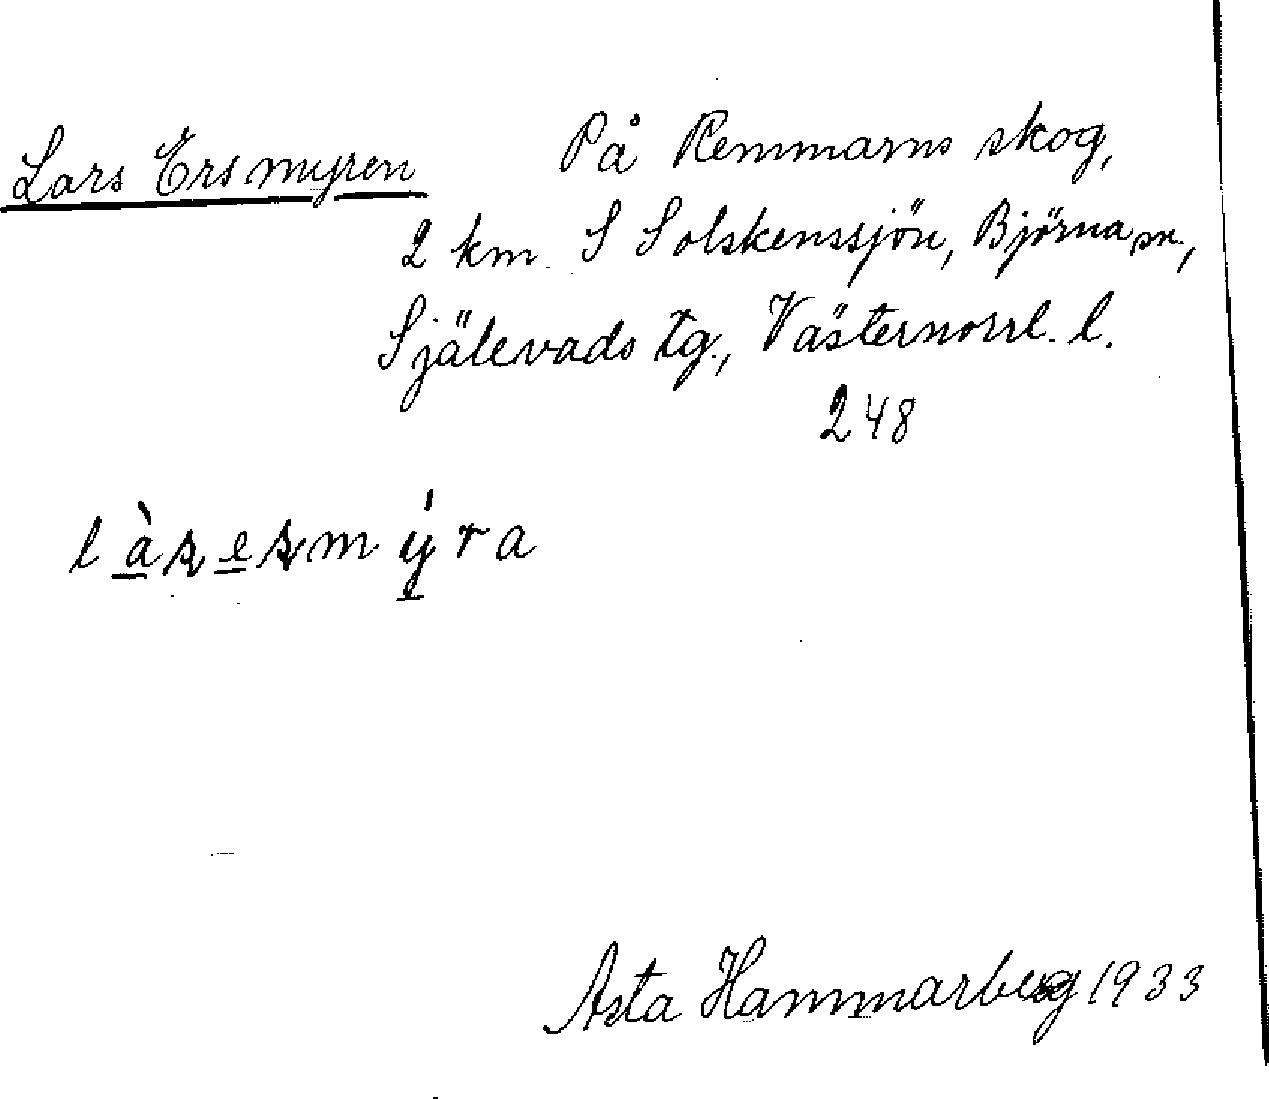 Lars Ersmyren På Remmarns skog,
2 km S Solskenssjön, Björna sn.,
Själevads tg., Västernorrl. l.
248
làʂeʂmýra
Asta Hammarberg 1933